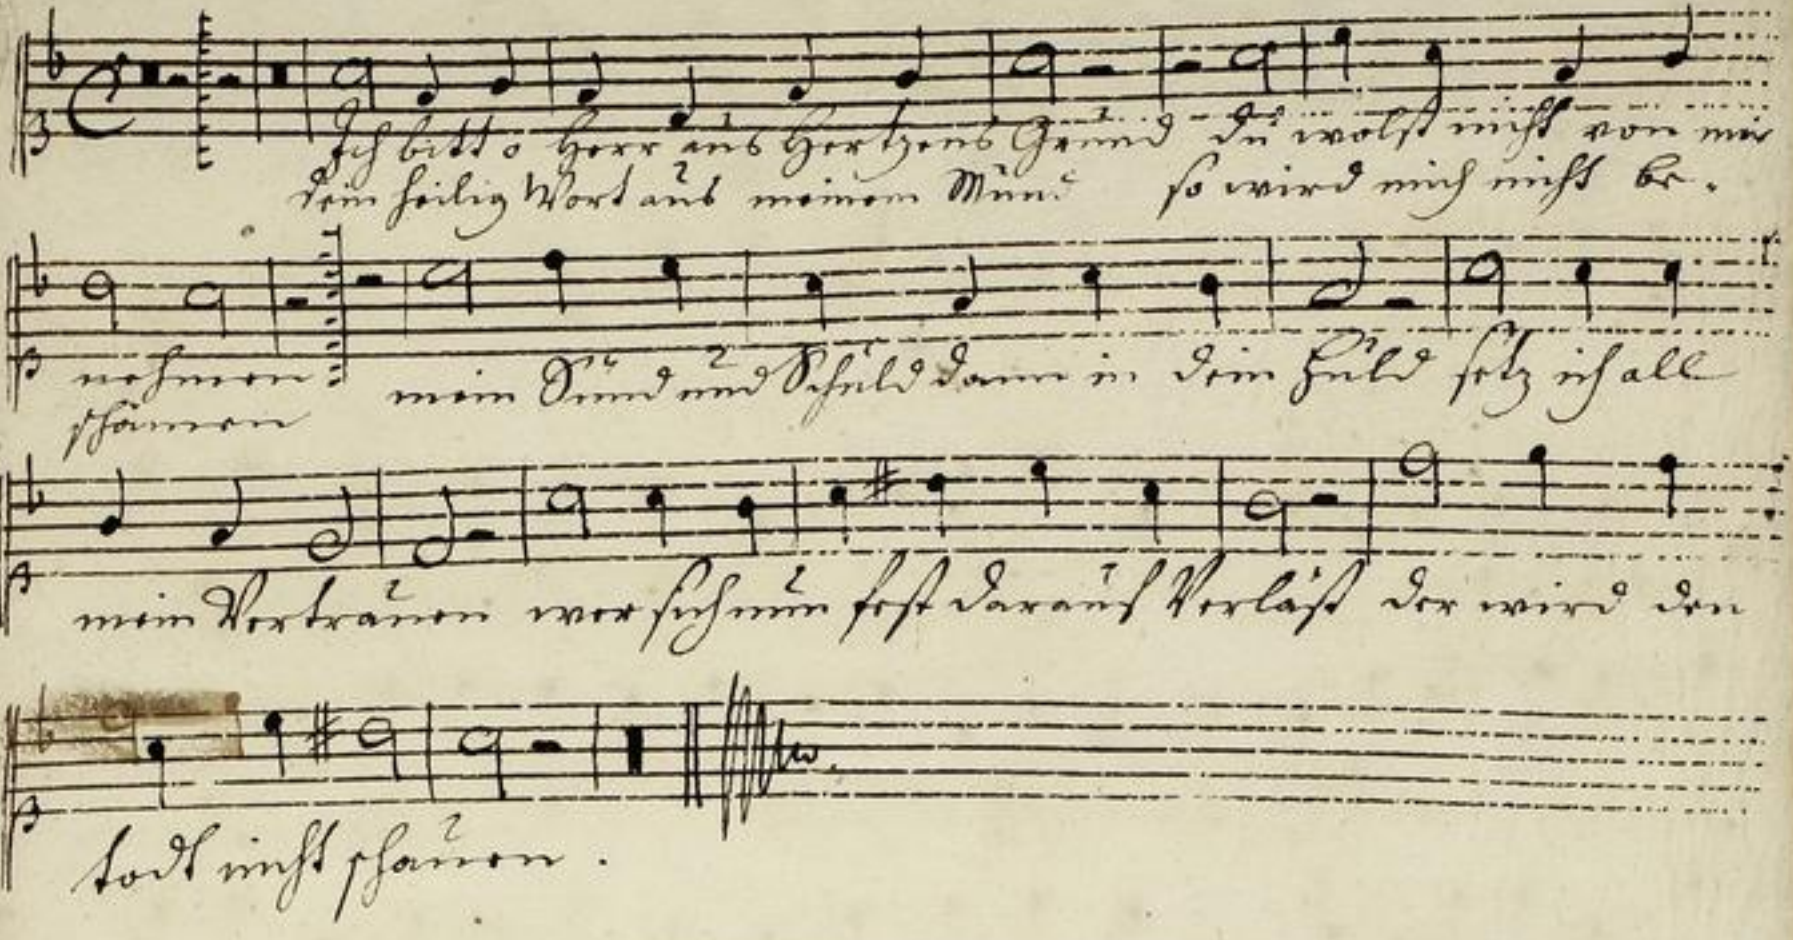 Ich bitt o Herr aus Hertzens Grund du wolst nicht von mir
dein heilig Wort aus meinem Mund so wird mich nicht be-
nehmen mein Sünd und Schuld dann in dein Huld setz ich all
schämen
mein Vertrauen wer sich nun fest darauf Verläst der wird den
todt nicht schauen.